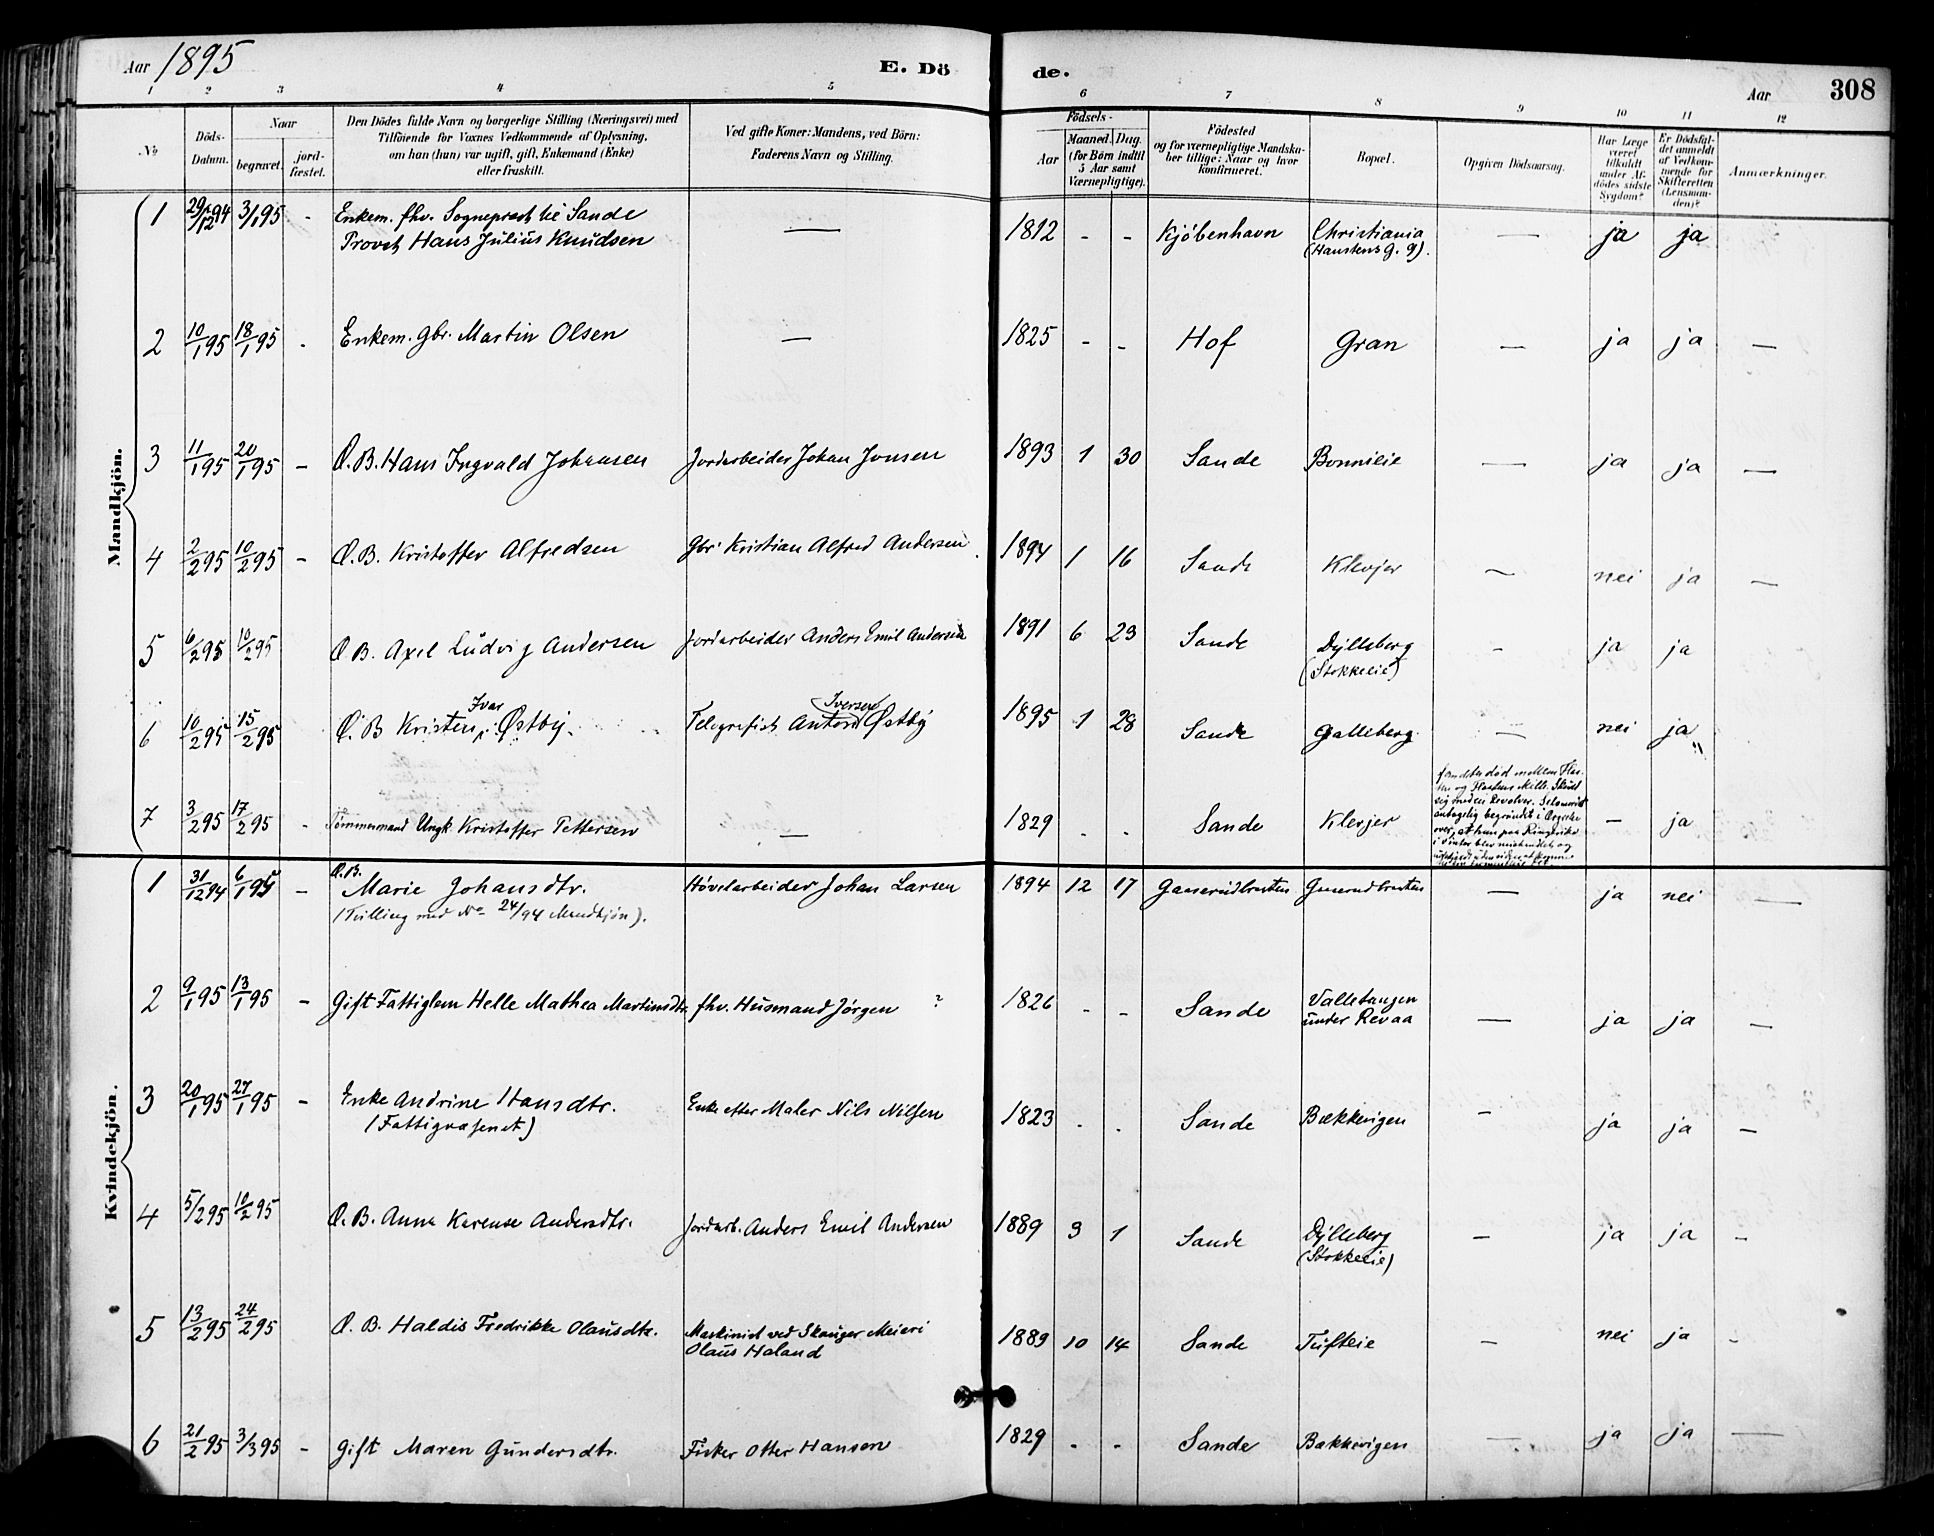 Aar 1895 E. Dö de. Aar 308
1 2 3 4 5 6 7 8 9 10 11 12
No
Döds-Datum.
Naar
begravet. jord-fæstet.
Den Dödes fulde Navn og borgerlige Stilling (Næringsvei) med
Tilföiende for Voxnes Vedkommende af Oplysning,
om han (hun) var ugift, gift, Enkemand (Enke)
eller fraskilt.
Ved gifte Koner: Mandens, ved Börn:
Faderens Navn og Stilling.
Födsels-
Aar Maaned. Dag.
(for Börn indtil
5 Aar samt
Værnepligtige).
Födested
og for værnepligtige Mandska-
ber tillige: Naar og hvor
konfirmeret.
Bopæl.
Opgiven Dödsaarsag.
Har Læge
været
tilkaldt
under Af-
dödes sidste
Sygdom?
Er Dödsfal-
det anmeldt
af Vedkom-
mende for
Skifteretten
(Lensman-
den)?
Anmærkninger.
Mandkjön.
1 29/12 94 3/1 95 - Enkem. fhv. Sogneprest til Sande — 1812 - - Kjöbenhavn Christiania — ja ja
Provst Hans Julius Knudsen (Hanstensg. 9).
2 10/1 95 18/1 95 - Enkem. Gbr. Martin Olsen — 1825 - - Hof Gran — ja ja —
3 11/1 95 20/1 95 - Æ.B. Hans Ingvald Johansen Jordarbeider Johan Jonsen 1893 1 30 Sande Bonnieie — ja ja —
4 2/2 95 10/2 95 - Æ.B. Kristoffer Alfredsen Gbr Kristian Alfred Andersen 1894 1 16 Sande Klevjer — nei ja —
5 6/2 95 10/2 95 Æ.B. Axel Ludvig Andersen Jordarbeider Anders Emil Andersen 1891 6 23 Sande Dylleberg - ja ja
(Stokkeeie)
Ivar Iversen
6 10/2 95 15/2 95 Æ.B Kristen Østby Telegrafist Anton Østby 1895 1 28 Sande Galleberg — nei ja "
7 3/2 95 17/2 95 - Tömmermand Ungk. Kristoffer Pettersen — 1829 - - Sande Klevjer — ja
fandtes död mellem
og Mölle. Skudt
sig med en Revolver. Selvmord
antagelig begrundet i Ærgrelse
over, at han paa Ringerike
i Vinter blev mishandlet og
Kvindekjön.
Æ.B.
1 31/12 94 6/1 95 - Marie Johansdtr. Hövelarbeider Johan Larsen 1894 12 17 Gaaserudbraaten Gaaserudbraaten — ja nei —
(Tvilling med No 24/94 Mandkjön).
2 9/1 95 13/1 95 - Gift Fattiglem Helle Mathea Martinsdtr. fhv. Husmand Jörgen ? 1826 - - Sande Valletangen — ja ja —
under Revaa
3 20/1 95 27/1 95 - Enke Andrine Hansdtr. Enke efter Maler Nils Nilsen 1823 - - Sande Bækkevigen - ja ja —
(Fattigvæsenet)
4 5/2 95 10/2 95 Æ.B. Anna Karense Andersdtr. Jordarb. Anders Emil Andersen 1889 3 1 Sande Dylleberg — ja ja -
(Stokkeeie)
5 13/2 95 24/2 95 Æ. B. Haldis Fredrikke Olausdtr. Maskinist ved Skauger Meieri 1889 10 14 Sande Tufteeie — nei ja -
Olaus Haland
6 21/2 95 3/3 95 - Gift Maren Gundersdtr. Fisker Otter Hansen 1829 - - Sande Bækkevigen — ja ja —